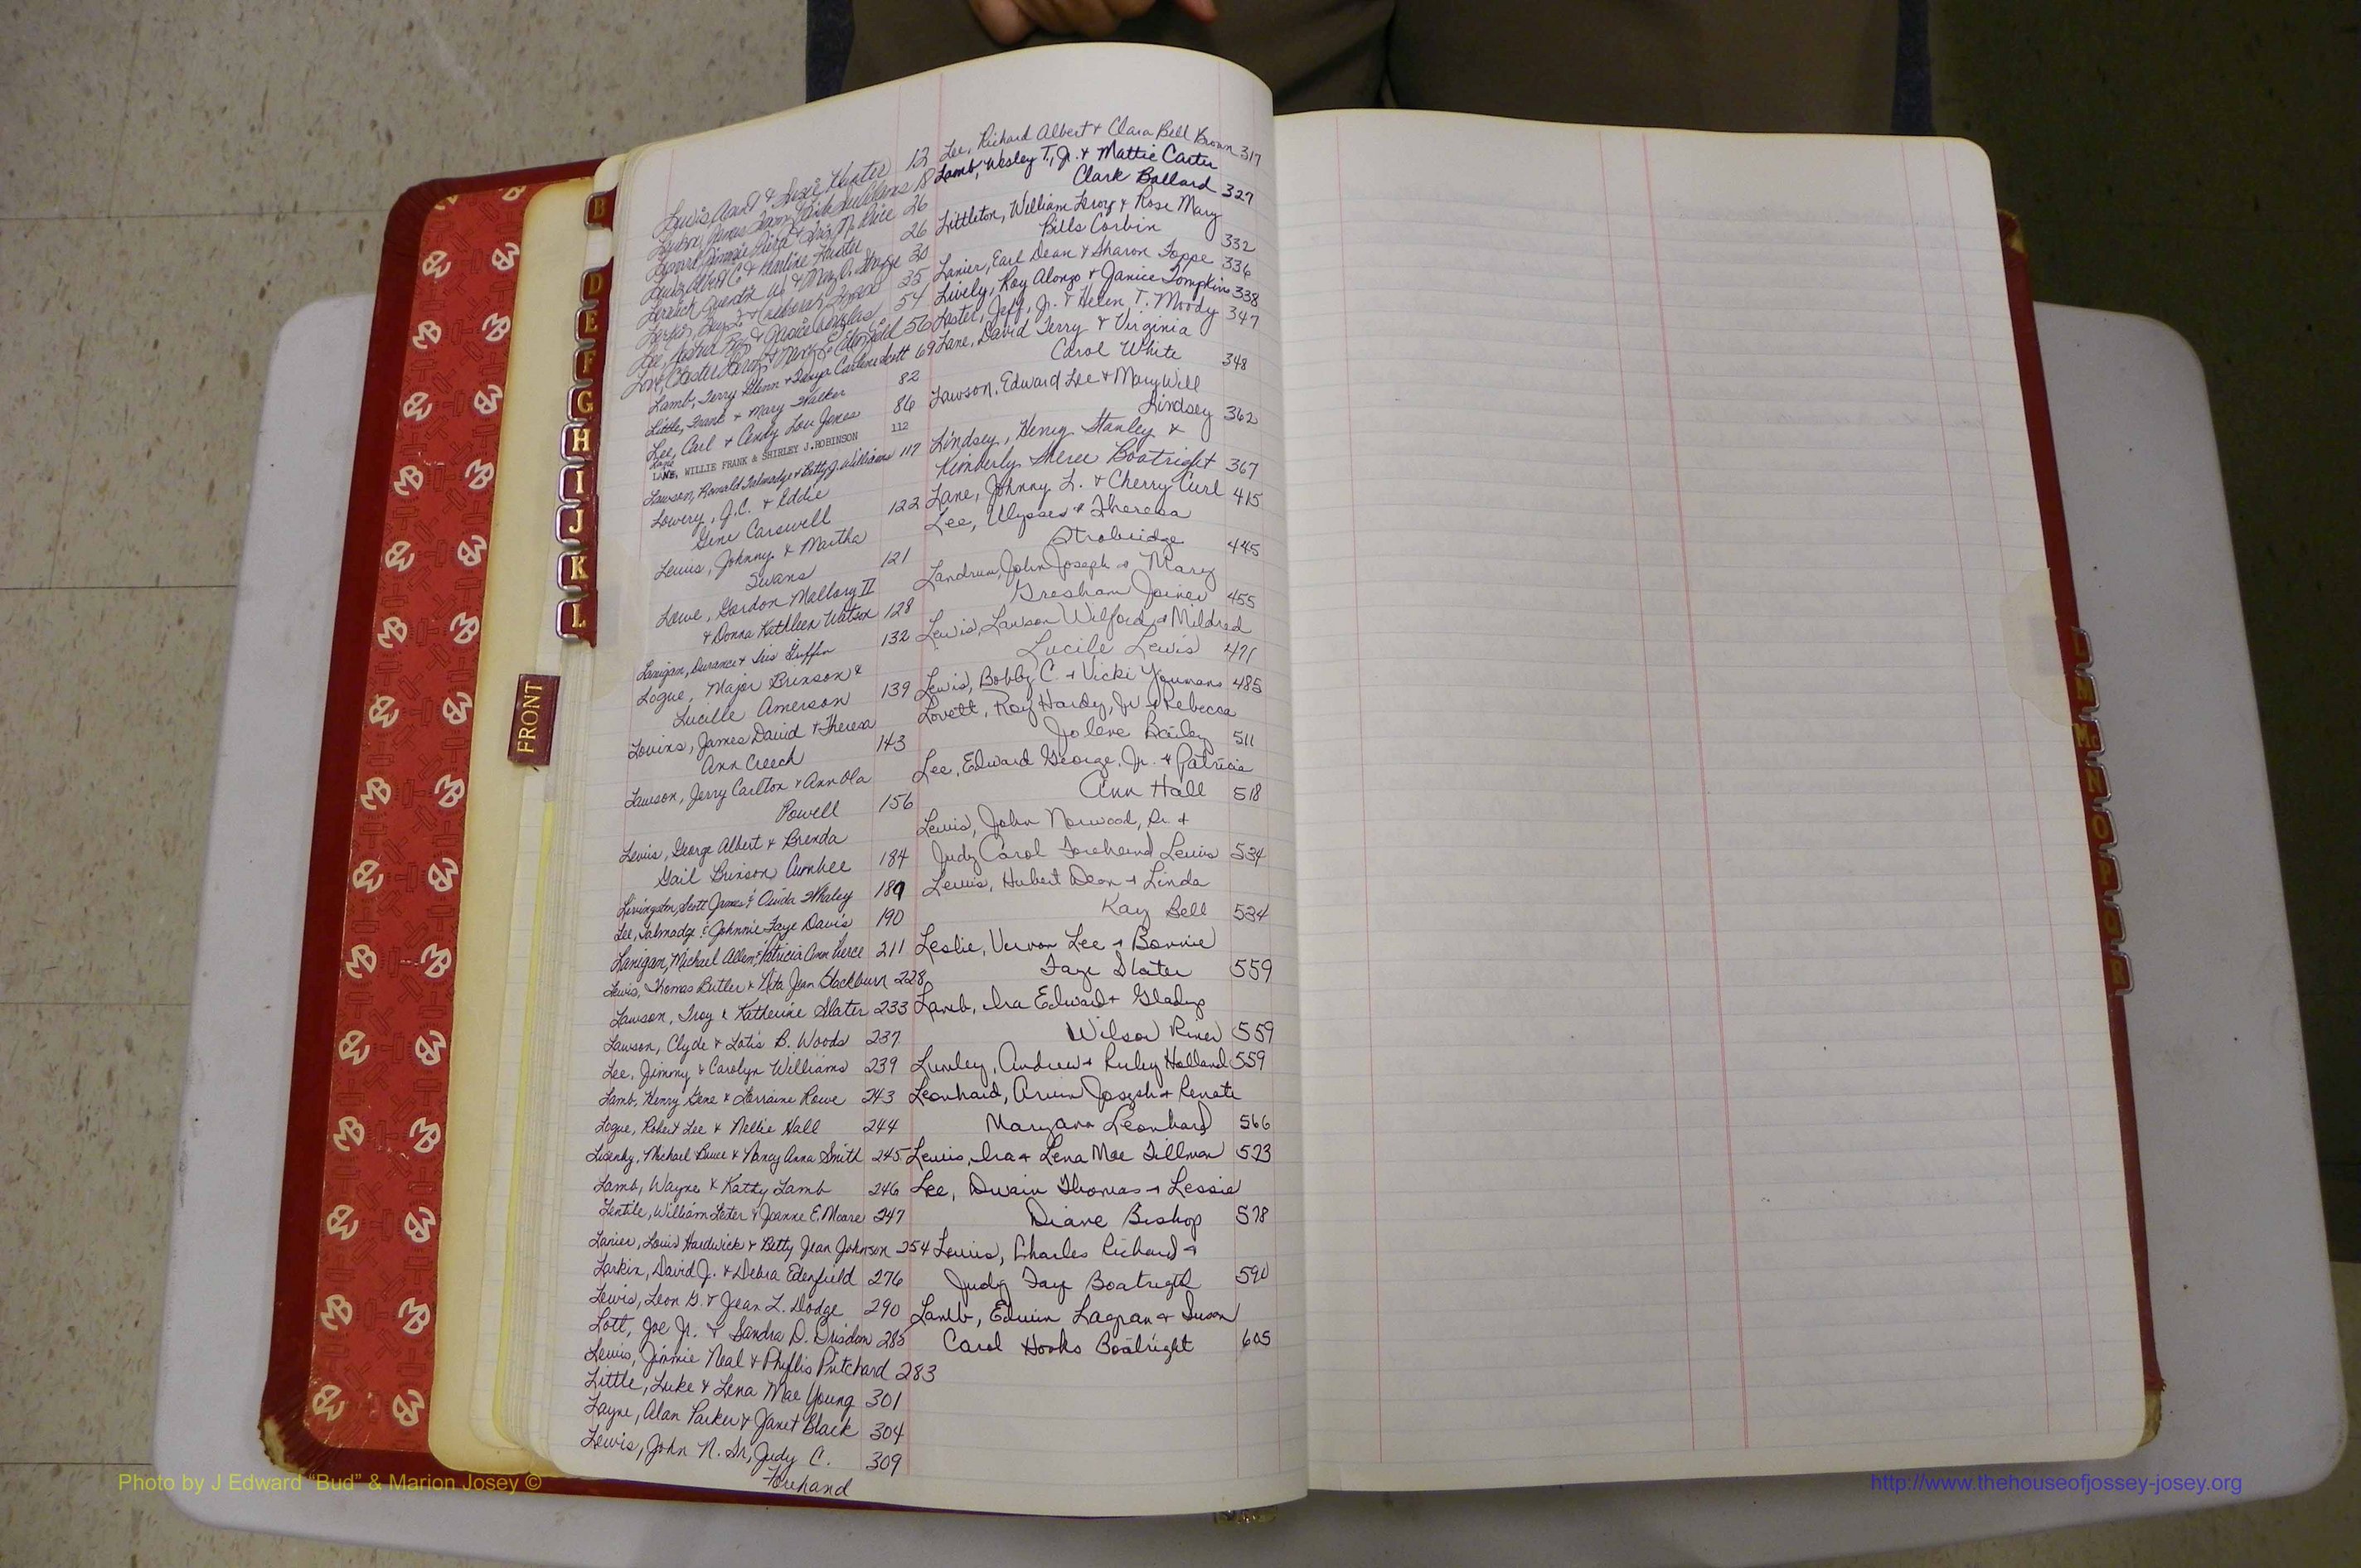 B
D
E
F
G
H
I
J
K
L
FRONT
Lewis, & Susie Hunter 12
18
26
Lewis, Albert C. & Earline Hunter 26
30
Larkin, & Deborah 35
Lee, & Janie Douglas 54
Love, Chester & Mary E. Edenfield 56
Lamb, Terry Glenn & Tanya Carlene Scott 69
Little, Frank & Mary Walker 82
Lee, Carl & Cindy Lou Jones 86
LANE, WILLIE FRANK & SHIRLEY J. ROBINSON 112
Lawson, Ronald Talmadge & Betty J. Williams 117
Lowery, J.C. & Eddie
Gene Carswell 122
Lewis, Johnny & Martha
Swans 121
Lowe, Gordon Mallory II
& Donna Kathleen Watson 128
Lanigan, Durance & Iris Griffin 132
Logue, Major Brinson &
Lucille Amerson 139
Lovins, James David & Theresa
Ann Creech 143
Lawson, Jerry Carlton & Ann Ola
Powell 156
Lewis, George Albert & Brenda
Gail Brinson Cumbee 184
Livingston, Scott James & Ouida Whaley 189
Lee, Talmadge & Johnnie Faye Davis 190
Lanigan, Michael Allen & Patricia Ann Pierce 211
Lewis, Thomas Butler & Nita Jean Blackburn 228
Lawson, Troy & Katherine Slater 233
Lawson, Clyde & Latis B. Woods 237
Lee, Jimmy & Carolyn Williams 239
Lamb, Henry Gene & Lorraine Rowe 243
Logue, Robert Lee & Nellie Hall 244
Lisenby, Michael Bruce & Nancy Anna Smith 245
Lamb, Wayne & Kathy Lamb 246
Lentile, William Lester & Jeanne E. Moore 247
Lanier, Louis Hardwick & Betty Jean Johnson 254
Larkin, David J. & Debra Edenfield 276
Lewis, Leon G. & Jean L. Dodge 290
Lott, Joe Jr. & Sandra D. Drisdom 285
Lewis, Jimmie Neal & Phyllis Pritchard 283
Little, Luke & Lena Mae Young 301
Layne, Alan Parker & Janet Black 304
Lewis, John N. Sr, Judy C. 309
Forehand
Lee, Richard Albert & Clara Bell Brown 317
Lamb, Wesley T., Jr. & Mattie Carter
Clark Ballard 327
Littleton, William Leroy & Rose Mary
Bills Corbin 332
Lanier, Earl Dean & Sharon Foppe 336
Lively, Roy Alonzo & Janice Tompkins 338
Laster, Jeff, Jr. & Helen T. Moody 347
Lane, David Terry & Virginia
Carol White 348
Lawson, Edward Lee & Mary Will
Lindsey 362
Lindsey, Henry Stanley &
Kimberly Sheree Boatright 367
Lane, Johnny L. & Cherry Curl 415
Lee, Ulysses & Theresa
Strobridge 445
Landrum, John Joseph & Mary
Gresham Joiner 455
Lewis, Lawson Wilford & Mildred
Lucile Lewis 471
Lewis, Bobby C. & Vicki Youmans 485
Lovett, Roy Hardy, Jr. & Rebecca
Jolene Bailey 511
Lee, Edward George, Jr. & Patricia
Ann Hall 518
Lewis, John Norwood, Sr. &
Judy Carol Forehand Lewis 534
Lewis, Hubert Dean & Linda
Kay Bell 534
Leslie, Vernon Lee & Bonnie
Faye Slater 559
Lamb, Ira Edward & Gladys
Wilson Riner 559
Lumley, Andrew & Ruby Holland 559
Leonhard, Arvin Joseph & Renate
Maryana Leonhard 566
Lewis, Ira & Lena Mae Tillman 573
Lee, Dwain Thomas & Lessie
Diane Bishop 578
Lewis, Charles Richard &
Judy Faye Boatright 590
Lamb, Edwin Lagran & Susan
Carol Hooks Boatright 605
L
M
Mc
N
O
P
Q
R
Photo by J Edward “Bud” & Marion Josey ©
http://www.thehouseofjossey-josey.org